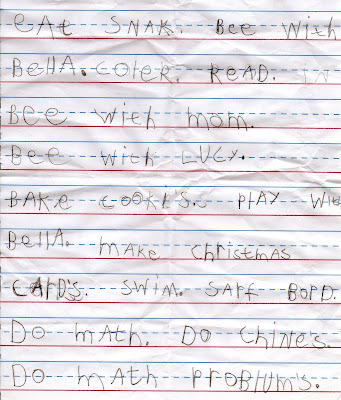 eAt SNAK. Bee With
BellA. coler. READ. IN
Bee with mom.
Bee with LUCY.
BAKe cooki's. PlAY With
BellA. mAke christmAs
CARD's. Swim. SARF BORD.
Do mAth. Do Chine's.
Do mAth PRoBlum's.